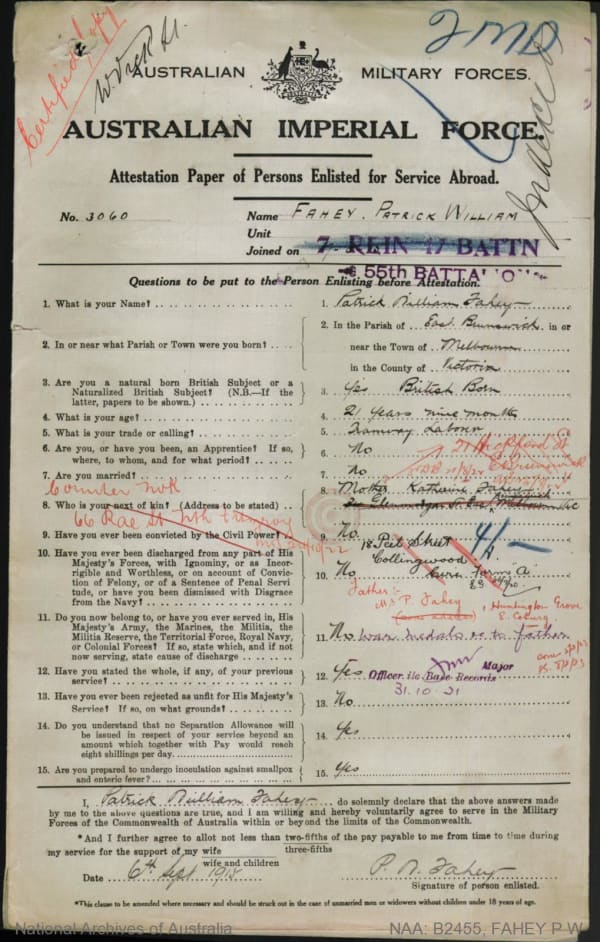 Certified Copy
AUSTRALIAN MILITARY FORCES.
AUSTRALIAN IMPERIAL FORCE.
Attestation Paper of Persons Enlisted for Service Abroad.
No. 3060 Name FAHEY, PATRICK WILLIAM
Unit
Joined on 7 REIN 17 BATTN
55th BATTA
Questions to be put to the Person Enlisting before Attestation.
1. What is your Name? 1. Patrick William Fahey
2. In or near what Parish or Town were you born? 2. In the Parish of East Brunswick in or
near the Town of Melbourne
in the County of Victoria
3. Are you a natural born British Subject or a
Naturalized British Subject? (N.B.—If the
latter, papers to be shown.) 3. Yes British Born
4. What is your age? 4. 21 years nine months
5. What is your trade or calling? 5. Tramway Labourer
6. Are you, or have you been, an Apprentice? If so,
where, to whom, and for what period? 6. No
7. Are you married? 7. No
8. Who is your next of kin? (Address to be stated) 8. Mother Katherine Fahey
66 Rae St Nth Fitzroy
18 Peel Street
Collingwood
9. Have you ever been convicted by the Civil Power? 9. No
4/-
10. Have you ever been discharged from any part of His
Majesty's Forces, with Ignominy, or as Incor-
rigible and Worthless, or on account of Convic-
tion of Felony, or of a Sentence of Penal Servi
tude, or have you been dismissed with Disgrace
from the Navy? 10. No
Father:-
Mr P. Fahey, Huntington Grove
E. Coburg
11. Do you now belong to, or have you ever served in, His
Majesty's Army, the Marines, the Militia, the
Militia Reserve, the Territorial Force, Royal Navy,
or Colonial Forces? If so, state which, and if not
now serving, state cause of discharge 11. No
war medals to father
12. Have you stated the whole, if any, of your previous
service? 12. Yes
Major
Officer i/c Base Records
31.10.21
13. Have you ever been rejected as unfit for His Majesty's
Service? If so, on what grounds? 13. No
14. Do you understand that no Separation Allowance will
be issued in respect of your service beyond an
amount which together with Pay would reach
eight shillings per day 14. Yes
15. Are you prepared to undergo inoculation against smallpox
and enteric fever? 15. Yes
I, Patrick William Fahey do solemnly declare that the above answers made
by me to the above questions are true, and I am willing and hereby voluntarily agree to serve in the Military
Forces of the Commonwealth of Australia within or beyond the limits of the Commonwealth.
*And I further agree to allot not less than two-fifths of the pay payable to me from time to time during
three-fifths
my service for the support of my wife
wife and children
Date 6th Sept 1915 P. W. Fahey
Signature of person enlisted.
*This clause to be amended where necessary and should be struck out in the case of unmarried men or widowers without children under 18 years of age.
National Archives of Australia NAA: B2455, FAHEY P W